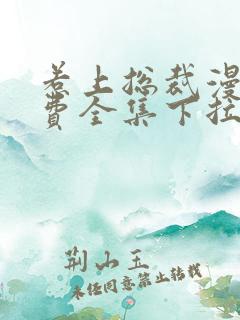 若上总裁漫
费全集下拉
荆山玉
未经同意禁止转载